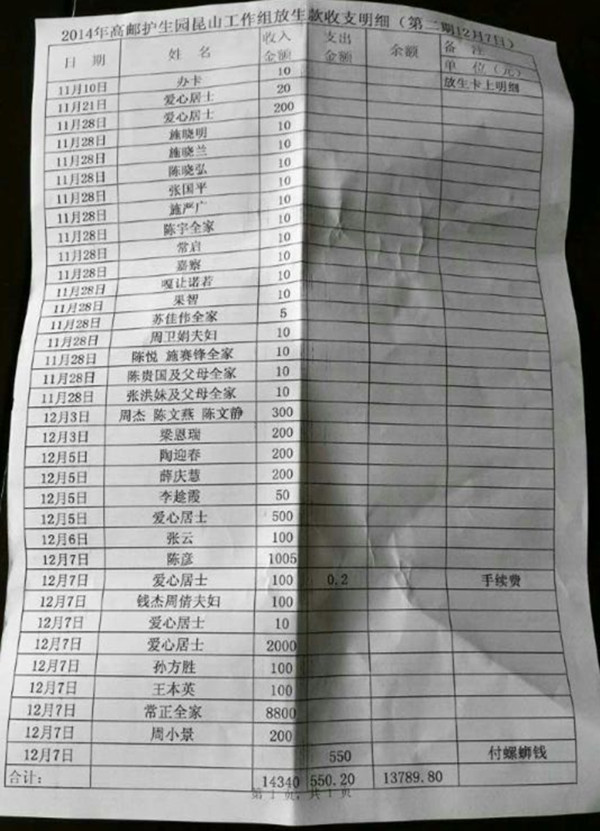 2014年高邮护生园昆山工作组放生款收支明细（第二期12月7日）
日 期 姓 名 收入金额 支出金额 余额 备 注
单 位（元）
11月10日 办卡 10 放生卡上明细
11月21日 爱心居士 20
11月28日 爱心居士 200
11月28日 施晓明 10
11月28日 施晓兰 10
11月28日 陈晓弘 10
11月28日 张国平 10
11月28日 施严广 10
11月28日 陈宇全家 10
11月28日 常启 10
11月28日 嘉察 10
11月28日 嘎让诺若 10
11月28日 果智 10
11月28日 苏佳伟全家 5
11月28日 周卫娟夫妇 10
11月28日 陈悦 施赛锋全家 10
11月28日 陈贵国及父母全家 10
11月28日 张洪妹及父母全家 10
12月3日 周杰 陈文燕 陈文静 300
12月3日 梁恩瑞 200
12月5日 陶迎春 200
12月5日 薛庆慧 200
12月5日 李趁霞 50
12月5日 爱心居士 500
12月6日 张云 100
12月7日 陈彦 1005
12月7日 爱心居士 100 0.2 手续费
12月7日 钱杰周倩夫妇 100
12月7日 爱心居士 10
12月7日 爱心居士 2000
12月7日 孙方胜 100
12月7日 王本英 100
12月7日 常正全家 8800
12月7日 周小景 200
12月7日 550 付螺蛳钱
合计: 14340 550.20 13789.80
第 1 页，共 1 页